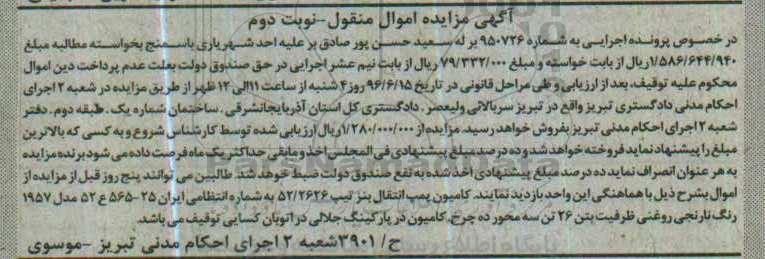 آگهی مزایده اموال منقول -نوبت دوم
در خصوص پرونده اجرایی به شماره ۹۵۰۷۲۶ بر له سعید حسن پور صادق بر علیه احد شهریاری باسمنج بخواسته مطالبه مبلغ
۱/۵۸۶/۶۴۴/۹۴۰ریال از بابت خواسته و مبلغ ۷۹/۳۳۲/۰۰۰ ریال از بابت نیم عشر اجرایی در حق صندوق دولت بعلت عدم پرداخت دین اموال
محکوم علیه توقیف، بعد از ارزیابی و طی مراحل قانونی در تاریخ ۹۶/۶/۱۵ روز ۴ شنبه از ساعت ۱۱الی ۱۲ ظهر از طریق مزایده در شعبه ۲ اجرای
احکام مدنی دادگستری تبریز واقع در تبریز سربالائی ولیعصر . دادگستری کل استان آذربایجانشرقی . ساختمان شماره یک . طبقه دوم . دفتر
شعبه ۲ اجرای احکام مدنی تبریز بفروش خواهد رسید. مزایده از ۱/۲۸۰/۰۰۰/۰۰۰ریال ارزیابی شده توسط کارشناس شروع و به کسی که بالاترین
مبلغ را پیشنهاد نماید فروخته خواهد شد و ده درصد مبلغ پیشنهادی فی المجلس اخذ و مابقی حداکثر یک ماه فرصت داده می شود برنده مزایده
به هر عنوان انصراف نماید ده درصد مبلغ پیشنهادی اخذ شده به نفع صندوق دولت ضبط خواهد شد. طالبین می توانند پنج روز قبل از مزایده از
اموال بشرح ذیل با هماهنگی این واحد بازدید نمایند. کامیون پمپ انتقال بنز تیپ ۵۲/۲۶۲۶ به شماره انتظامی ایران ۲۵-۵۶۵ ع ۵۲ مدل ۱۹۵۷
رنگ نارنجی روغنی ظرفیت بتن ۲۶ تن سه محور ده چرخ. کامیون در پارکینگ جلالی در اتوبان کسایی توقیف می باشد.
ح/ ۳۹۰۱شعبه ۲ اجرای احکام مدنی تبریز -موسوی